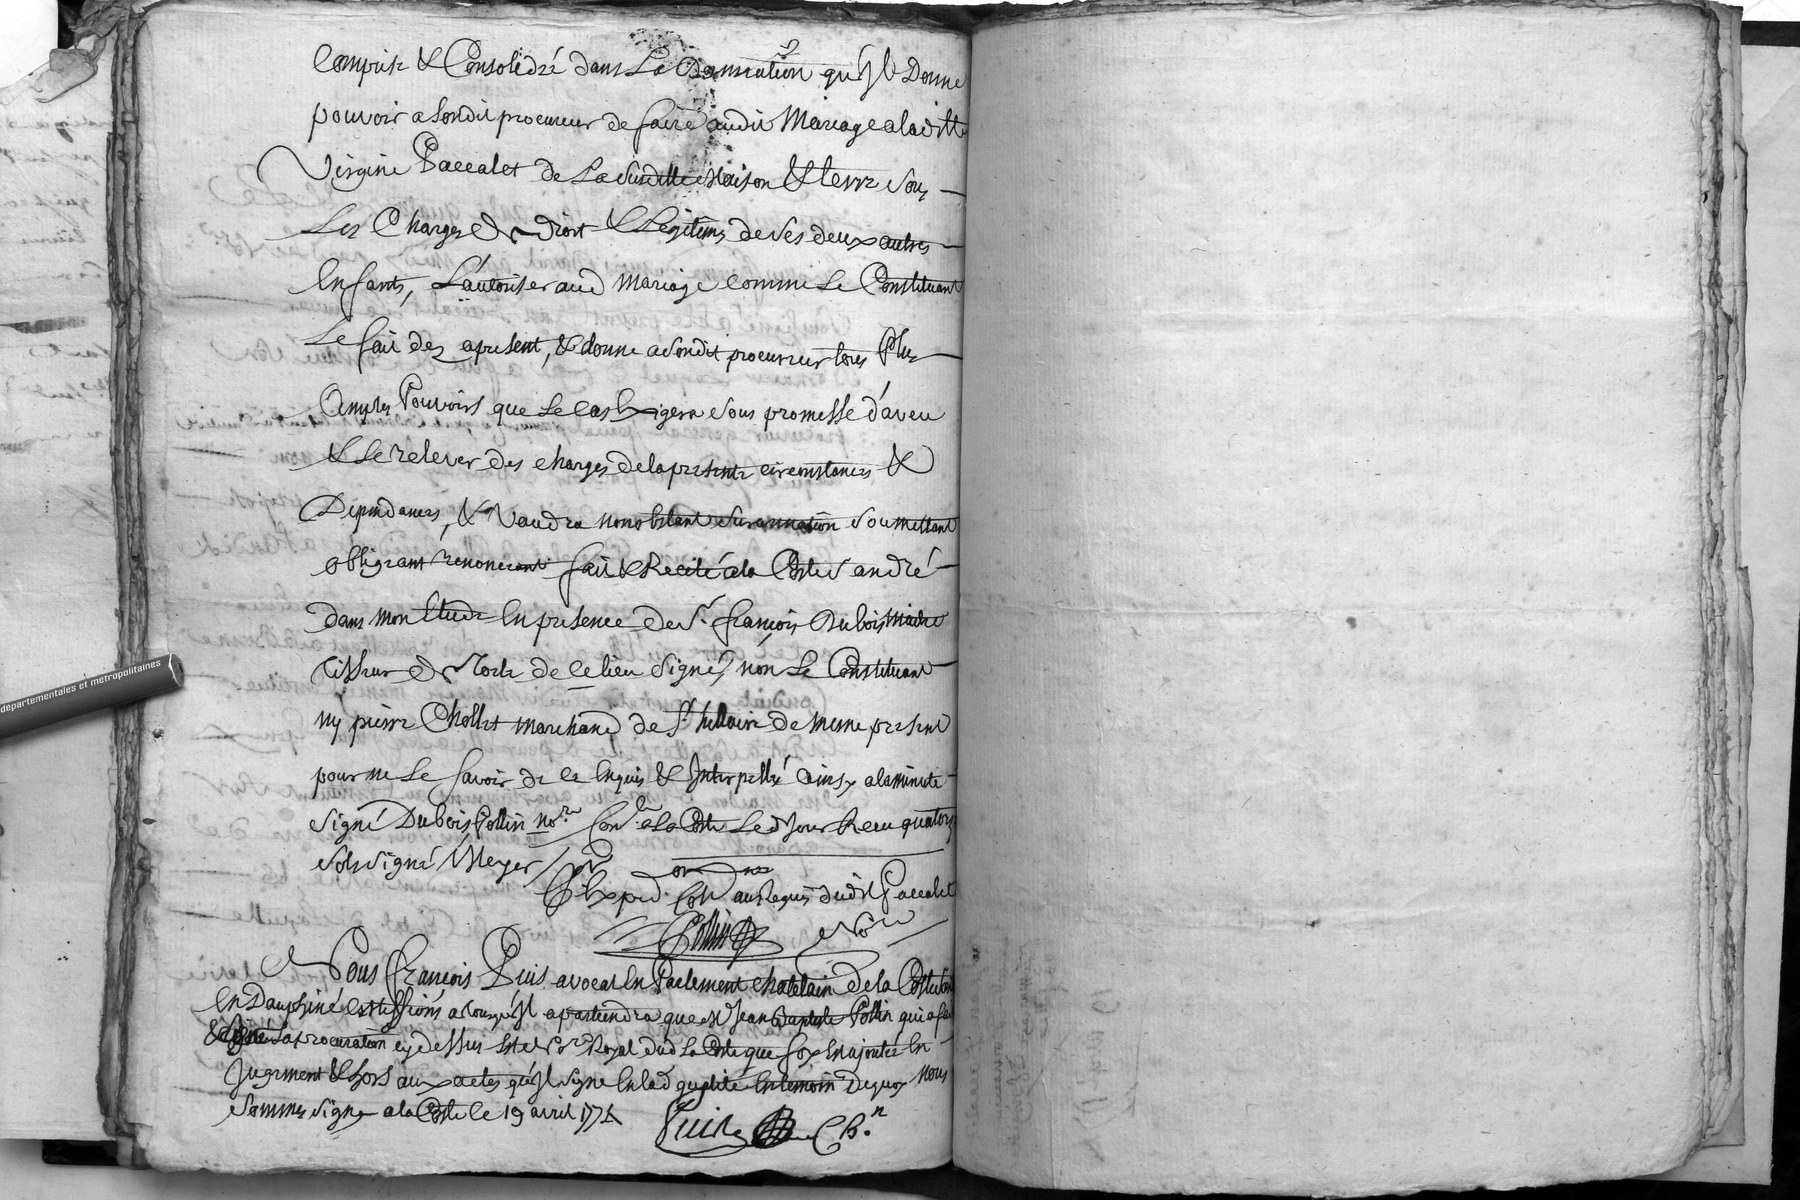 Comprise & Consolidée dans La Donnation qu'jl Donne
pouvoir a Sondit procureur de faire audit Mariage a laditte
Virginie Paccalet de La Susditte Maison & terre sous
Les Charges de droit & Legitimes de ses deux autres
Enfants, L'autoriser aud Mariage comme Le Constituant
Le fait dez a present, & donne a Sondit procureur tous Plus
Amples Pouvoirs que Le Cas Exigera sous promesse d'aveu
& Le relever des charges de la presente circonstances &
Dependances, & Vaudra nonobstant Surannation Soumettant
obligeant renoncant fait & Recité a la Coste S andré
dans mon Etude En presence de Sr. françois Dubois Maitre
de ce lieu Signés, non Le Constituant
ny pierre Chollet marchand de St hillaire de meme present
pour ne Le savoir de ce Enquis & Interpellé Ainsy a la minute
signé Dubois Collin nore Conlé a La Coste Led jour Reçu quatorze
sols signé Meyer
Expedié aud Paccalet
Collin Nore
Nous françois Puis avocat En Parlement chatelain de la Coste
En Dauphiné Certiffions a tous qu'jl apartiendra que Me Jean Baptiste Collin qui a fait
& signé La procuration cy dessus Est Nore Royal dud La Coste que foy Est ajoutée En
Jugement & hors aux actes qu'jl signe En lad qualité En temoin De quoy Nous
sommes signé a la Coste le 19 avril 1774
Puis Chn.
departementales et métropolitaines